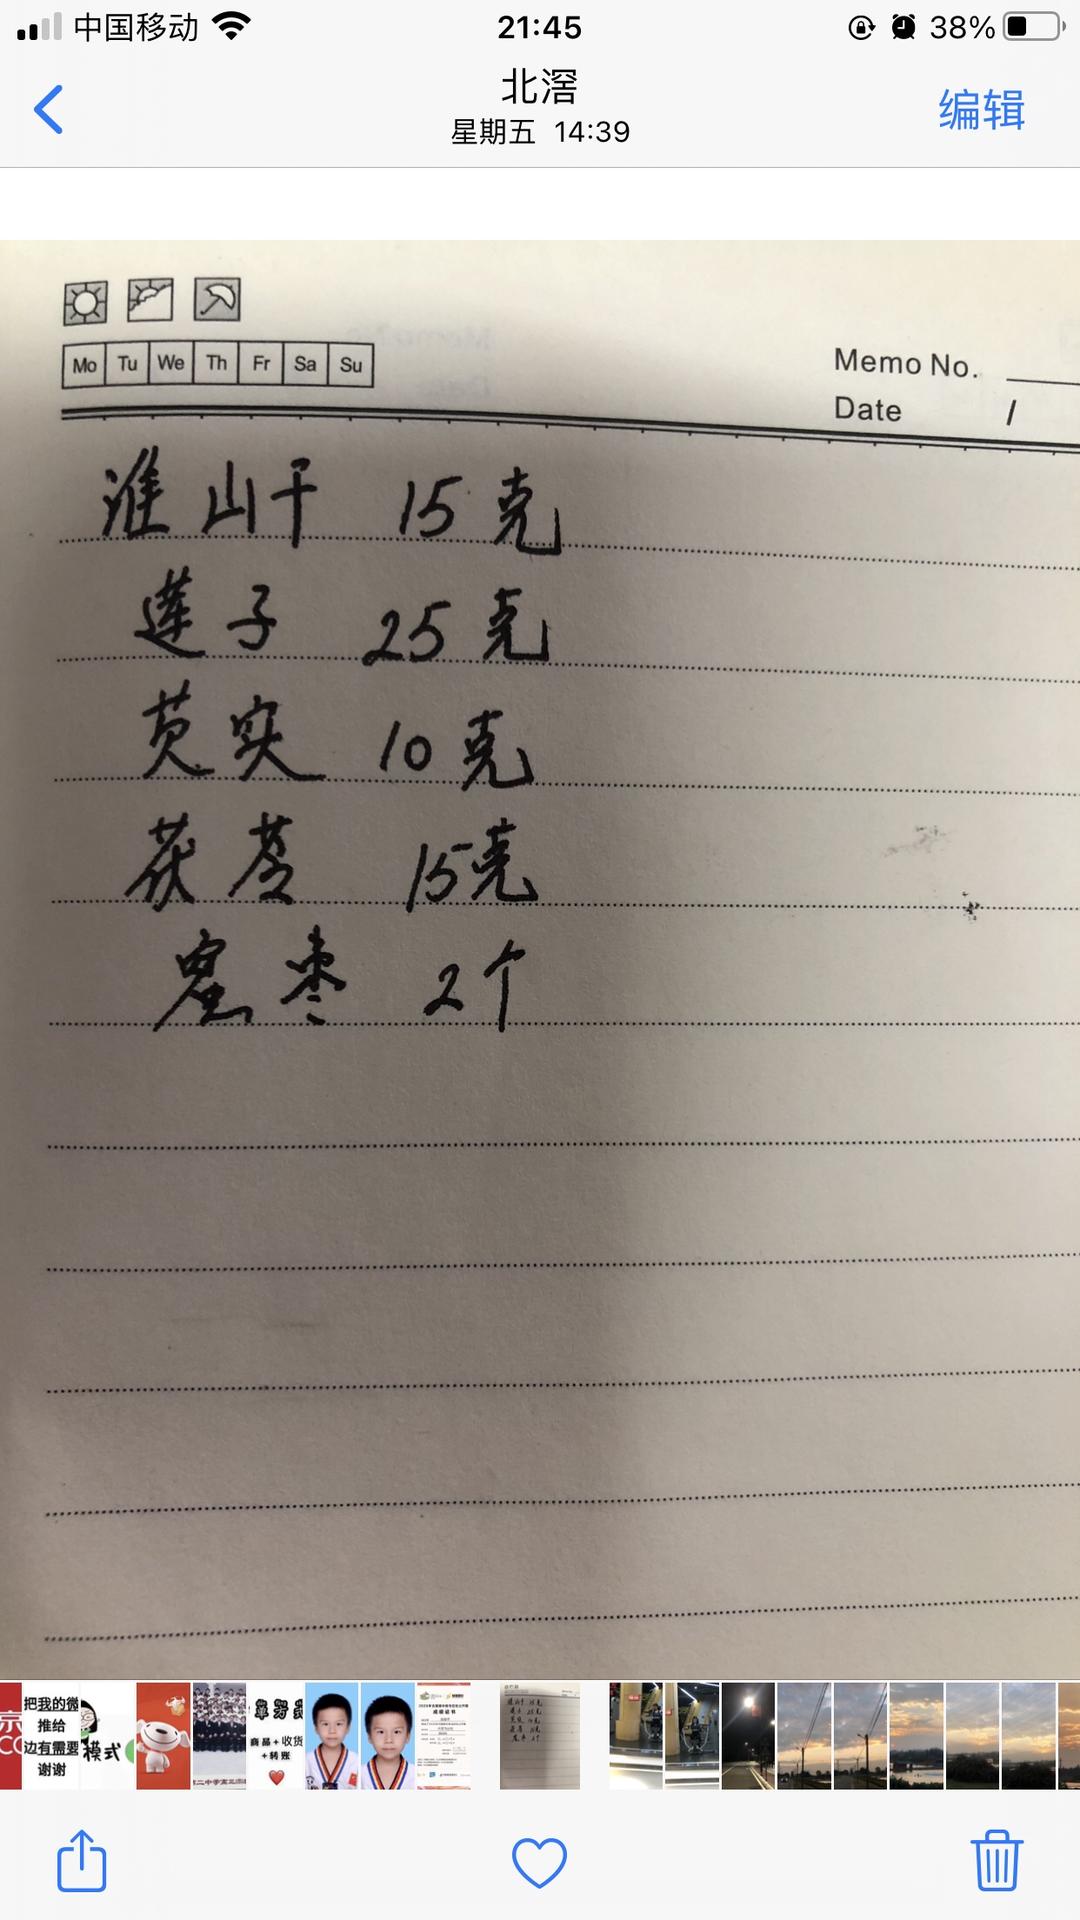 中国移动 21:45 38%
北滘
星期五 14:39
编辑
Mo Tu We Th Fr Sa Su
Memo No.
Date /
淮山干 15克
莲子 25克
芡实 10克
茯苓 15克
蜜枣 2个
把我的微
推给
边有需要
谢谢
模式
商品+收货
+转账